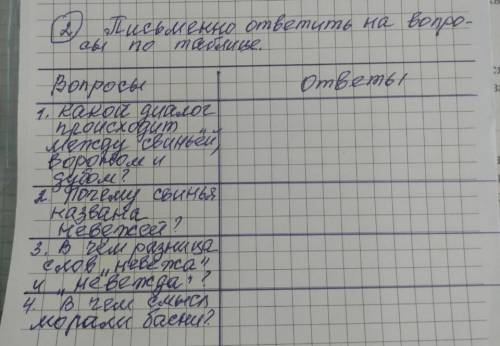 2 Письменно ответить на вопро-
сы по таблице.
Вопросы
Ответы
1. Какой диалог
происходит
между свиньёй,
вороном и
дубом?
2. Почему свинья
названа
невежей?
3. В чём разница
слов „невежа"
и „невежда"?
4. В чём смысл
морали басни?